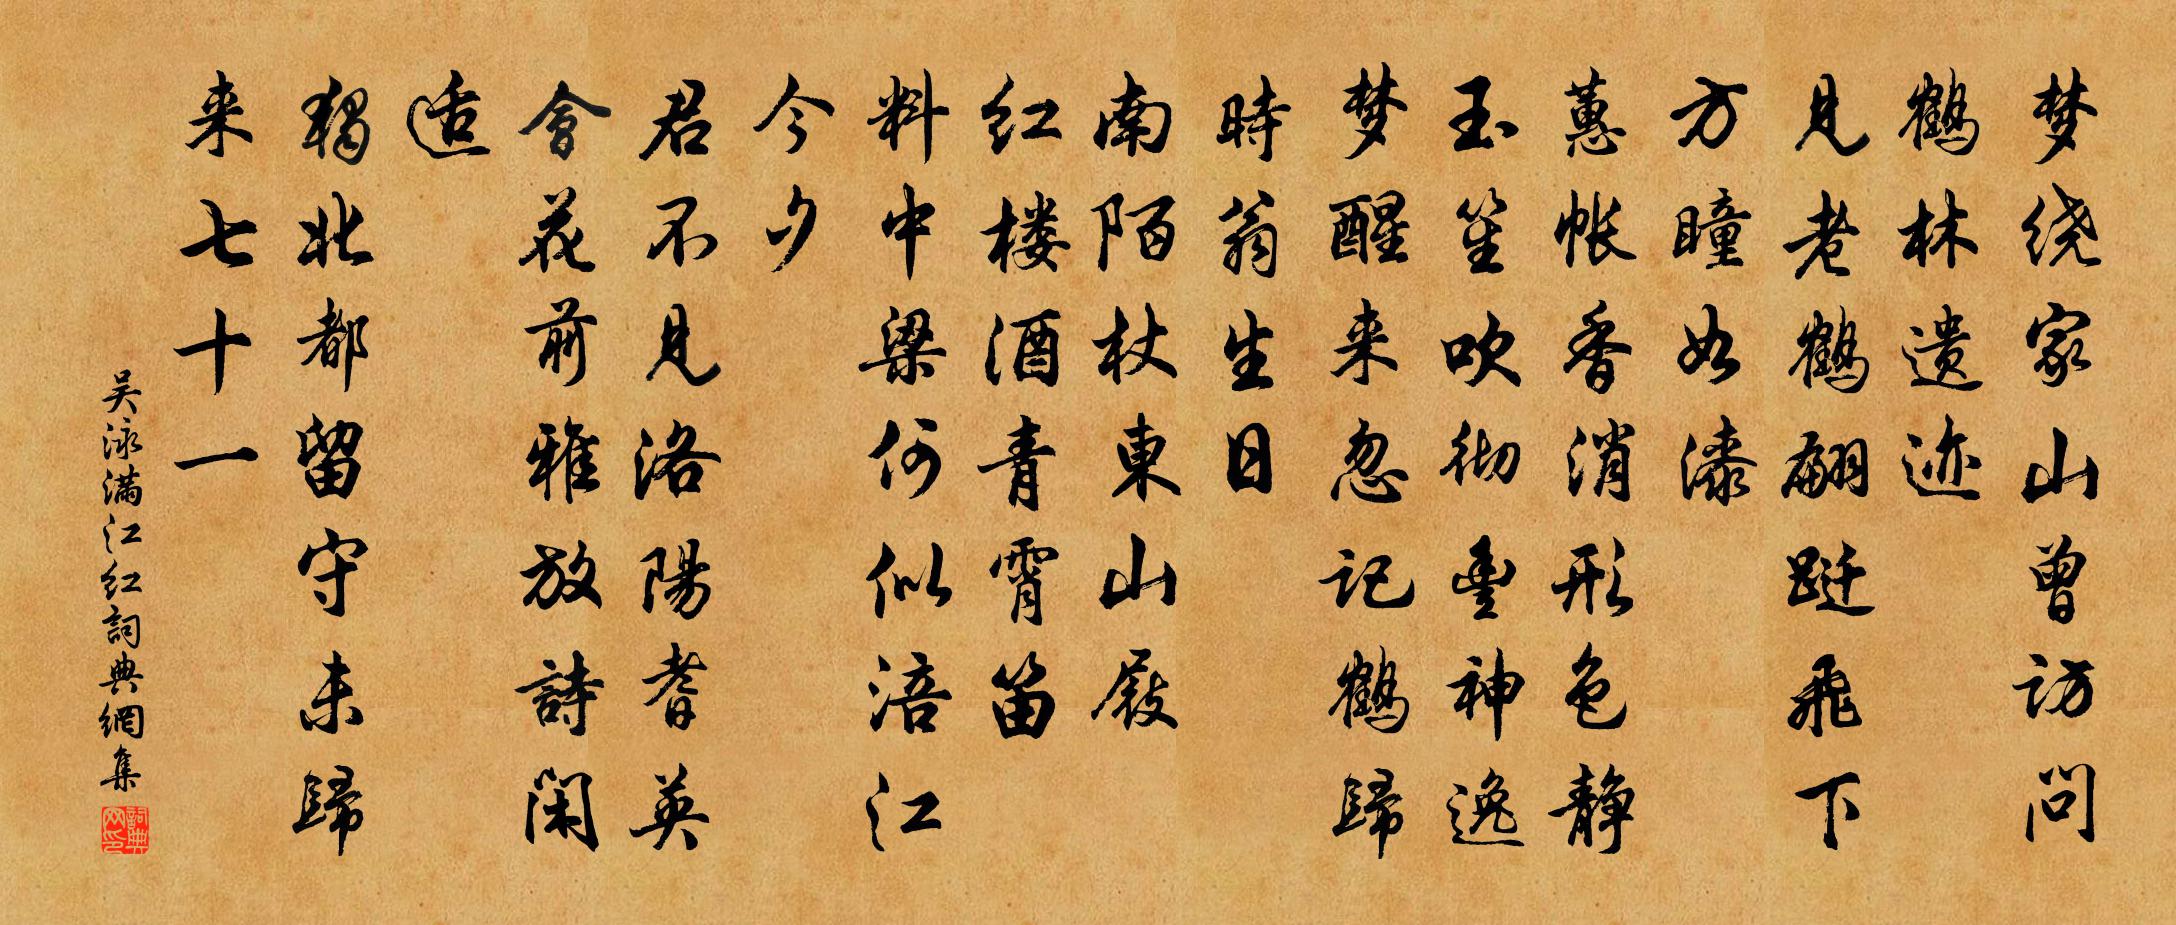 梦绕家山曾访问
鹤林遗迹
見老鹤翩跹飛下
方瞳如漆
蕙帐香消形色静
玉笙吹彻豐神逸
梦醒来忽记鹤歸
時翁生日
南陌杖東山屐
红楼酒青霄笛
料中梁何似涪江
今夕
君不見洛陽耆英
會花前雅放詩闲
适
獨北都留守未歸
来七十一
吴泳满江红詞典網集
詞典网印